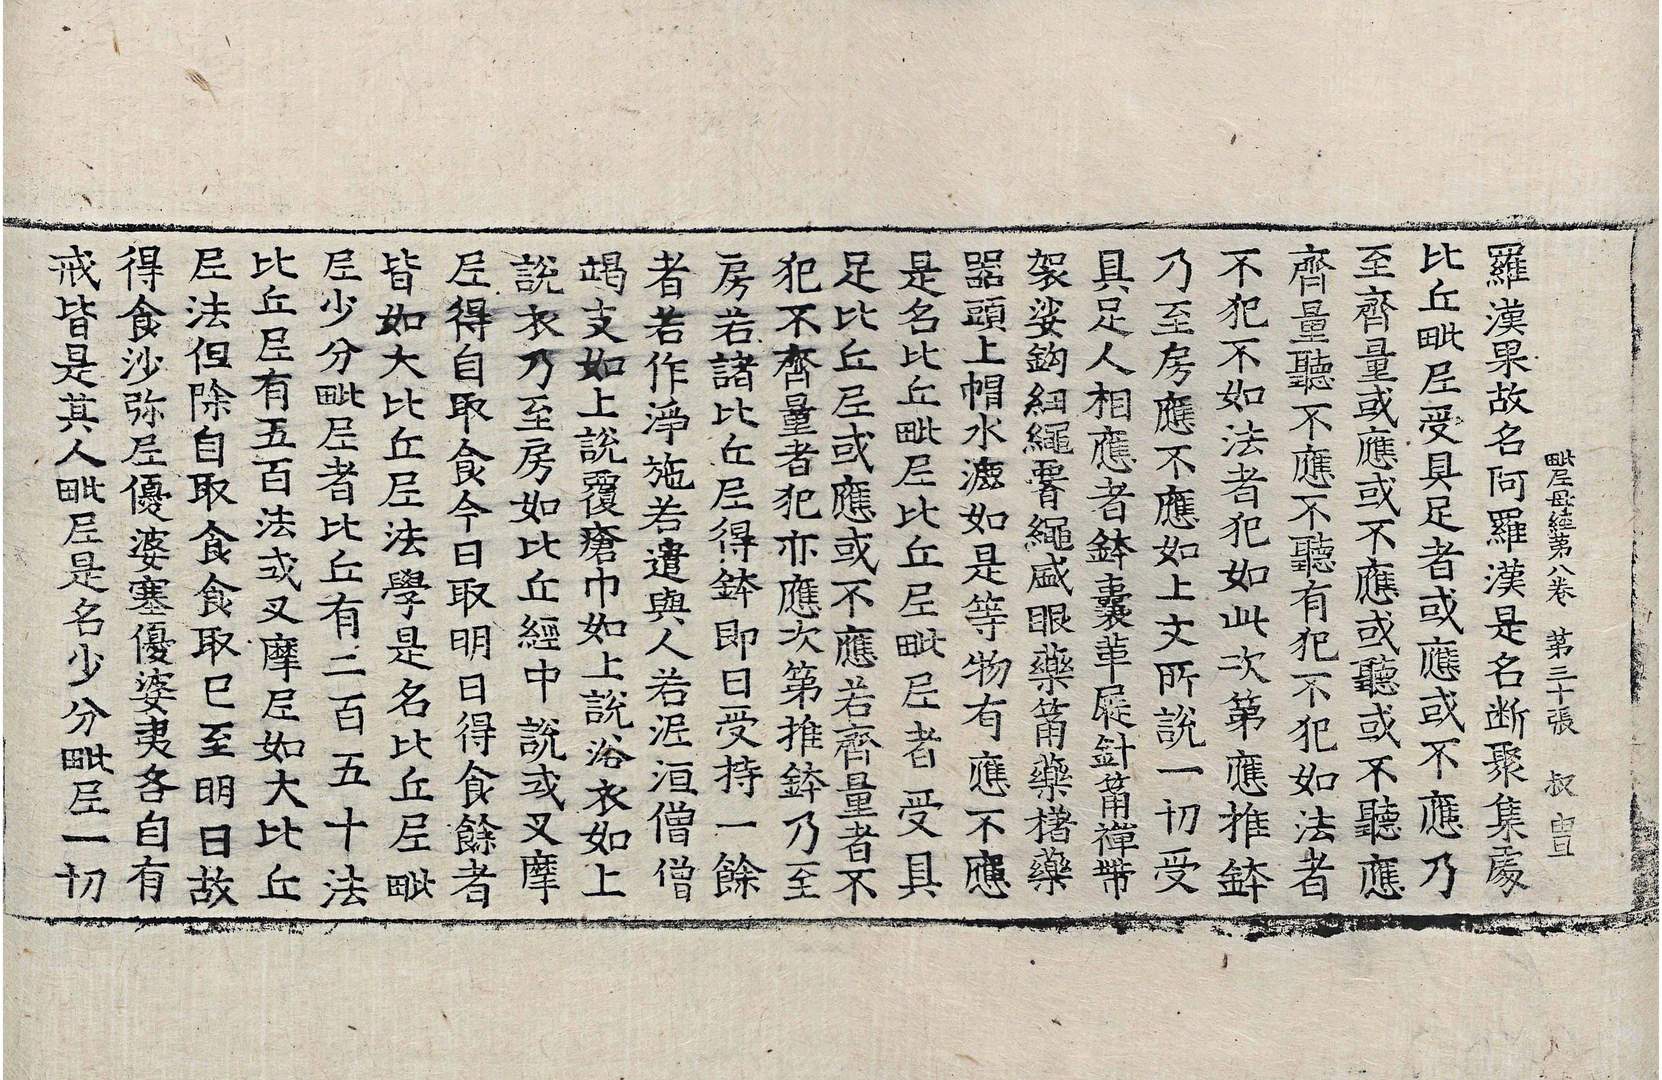 毗尼母經第八卷 第三十張 叔
羅漢果故名阿羅漢是名断聚集處
比丘毗尼受具足者或應或不應乃
至齊量或應或不應或聽或不聽應
齊量聽不應不聽有犯不犯如法者
不犯不如法者犯如此次第應推鉢
乃至房應不應如上文所說一切受
具足人相應者鉢囊革屣針筩禪帶
袈裟鈎細繩 繩盛眼藥筩藥 藥
器頭上帽水漉如是等物有應不應
是名比丘毗尼比丘尼毗尼者受具
足比丘尼或應或不應若齊量者不
犯不齊量者犯亦應次第推鉢乃至
房若諸比丘尼得鉢即日受持一餘
者若作淨施若遣與人若泥洹僧僧
竭支如上說覆瘡巾如上說浴衣如上
說衣乃至房如比丘經中說或叉摩
尼得自取食今日取明日得食餘者
皆如大比丘尼法學是名比丘尼毗
尼少分毗尼者比丘有二百五十法
比丘尼有五百法或叉摩尼如大比丘
尼法但除自取食食取已至明日故
得食沙弥尼優婆塞優婆夷各自有
戒皆是其人毗尼是名少分毗尼一切